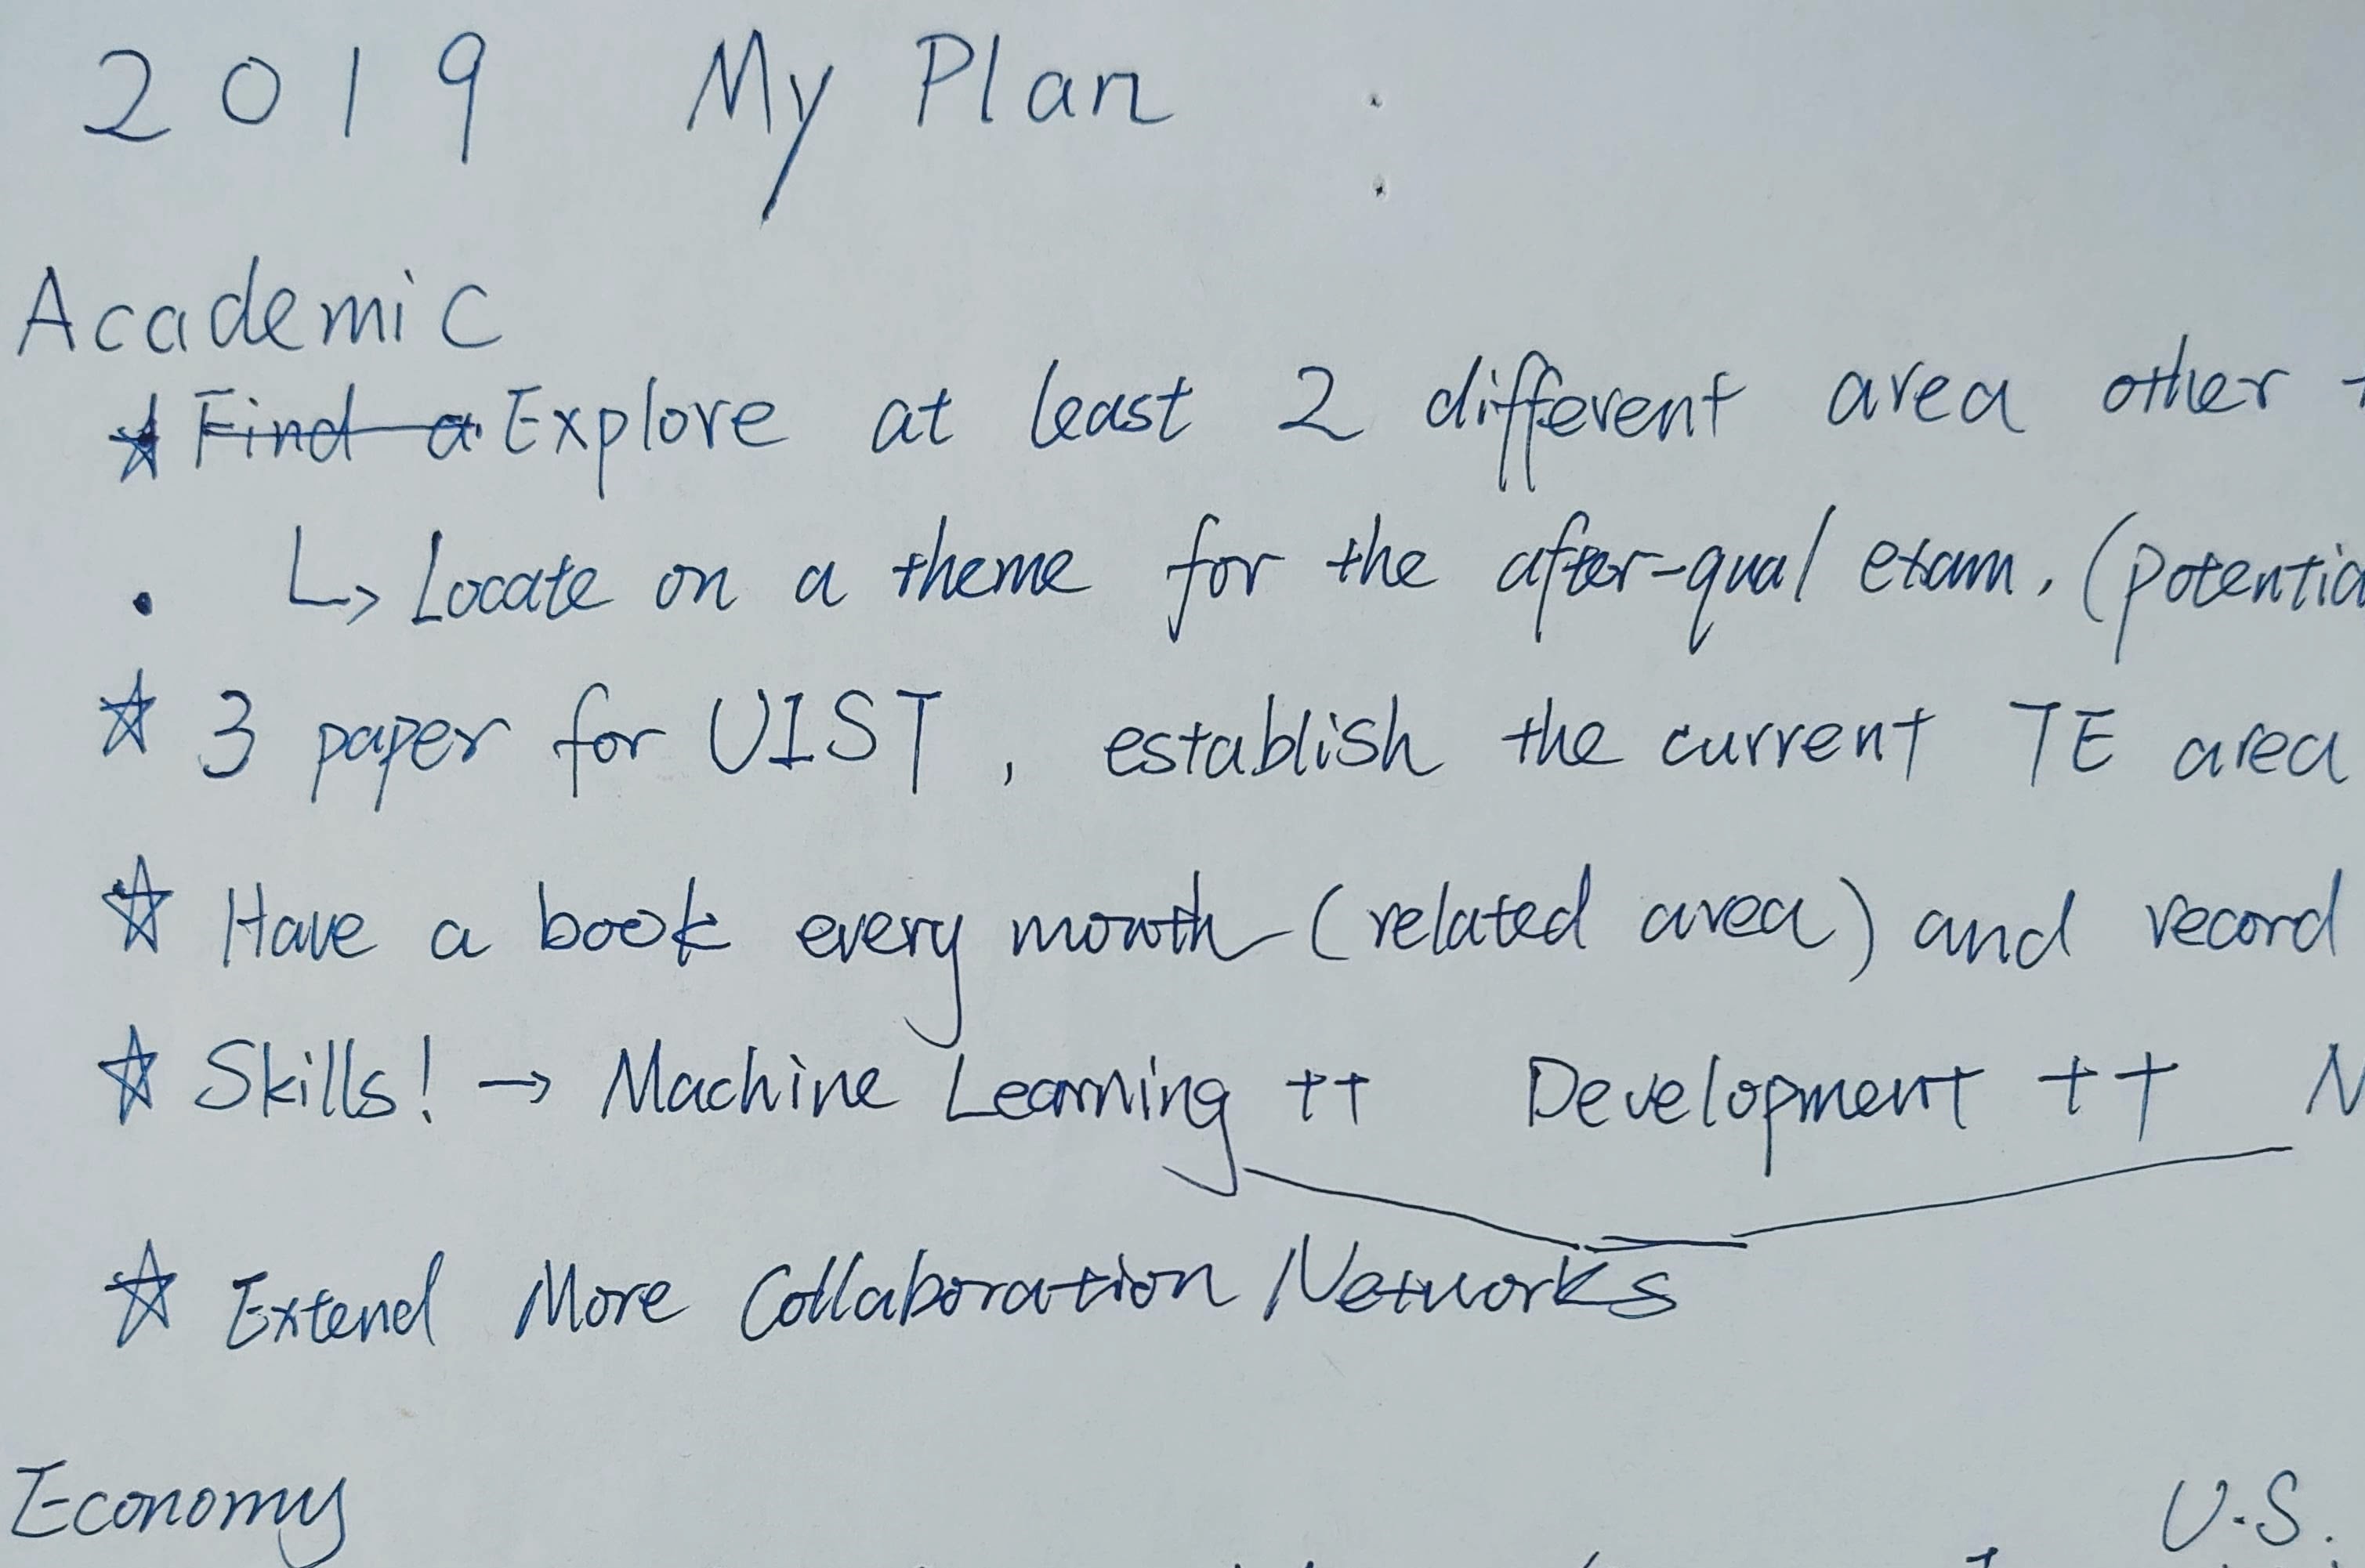 2019 My Plan :
Academic
☆ ~~Find a~~ Explore at least 2 different area other
• ↳ Locate on a theme for the after-qual exam. (potentia
☆ 3 paper for UIST, establish the current TE area
☆ Have a book every month (related area) and record
☆ Skills! → Machine Learning ++ Development ++ N
☆ Extend More Collaboration Networks
Economy U.S.